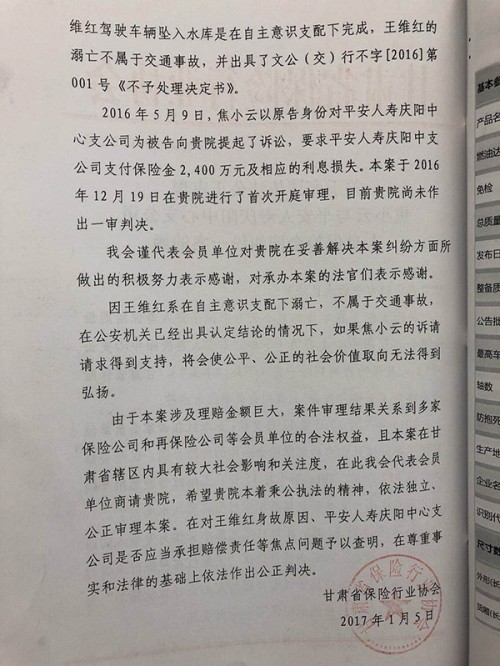 维红驾驶车辆坠入水库是在自主意识支配下完成，王维红的
溺亡不属于交通事故，并出具了文公（交）行不字[2016]第
001号《不予处理决定书》。
2016年5月9日，焦小云以原告身份对平安人寿庆阳中
心支公司为被告向贵院提起了诉讼，要求平安人寿庆阳中支
公司支付保险金2,400万元及相应的利息损失。本案于2016
年12月19日在贵院进行了首次开庭审理，目前贵院尚未作
出一审判决。
我会谨代表会员单位对贵院在妥善解决本案纠纷方面所
做出的积极努力表示感谢，对承办本案的法官们表示感谢。
因王维红系在自主意识支配下溺亡，不属于交通事故，
在公安机关已经出具认定结论的情况下，如果焦小云的诉请
请求得到支持，将会使公平、公正的社会价值取向无法得到
弘扬。
由于本案涉及理赔金额巨大，案件审理结果关系到多家
保险公司和再保险公司等会员单位的合法权益，且本案在甘
肃省辖区内具有较大社会影响和关注度，在此我会代表会员
单位商请贵院，希望贵院本着秉公执法的精神，依法独立、
公正审理本案。在对王维红身故原因、平安人寿庆阳中心支
公司是否应当承担赔偿责任等焦点问题予以查明，在尊重事
实和法律的基础上依法作出公正判决。
甘肃省保险行业协会
2017年1月5日
甘肃省保险行业协会
基本参
产品名
燃油达
免检
总质量
发布日
整备质
公告批
最高车
轴数
防抱死
生产地
企业名
识别代
尺寸数
外形(长
货厢(长